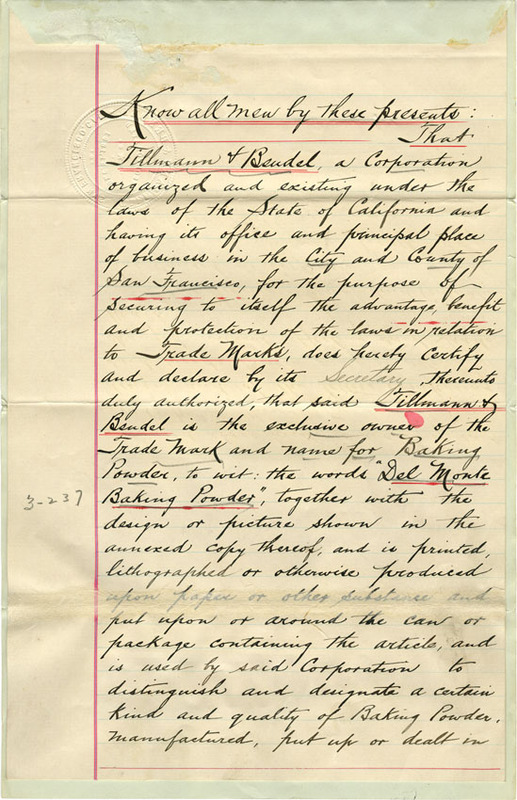 Know all men by these presents:
That
Tillmann & Bendel, a Corporation
organized and existing under the
laws of the State of California and
having its office and principal place
of business in the City and County of
San Francisco, for the purpose of
securing to itself the advantage, benefit
and protection of the laws in relation
to Trade Marks, does hereby certify
and declare by its Secretary, thereunto
duly authorized, that said Tillmann &
Bendel is the exclusive owner of the
Trade Mark and name for Baking
Powder, to wit: the words "Del Monte
Baking Powder", together with the
3-237
design or picture shown in the
annexed copy thereof, and is printed,
lithographed or otherwise produced
upon paper or other substance and
put upon or around the can or
package containing the article, and
is used by said Corporation to
distinguish and designate a certain
kind and quality of Baking Powder,
manufactured, put up or dealt in